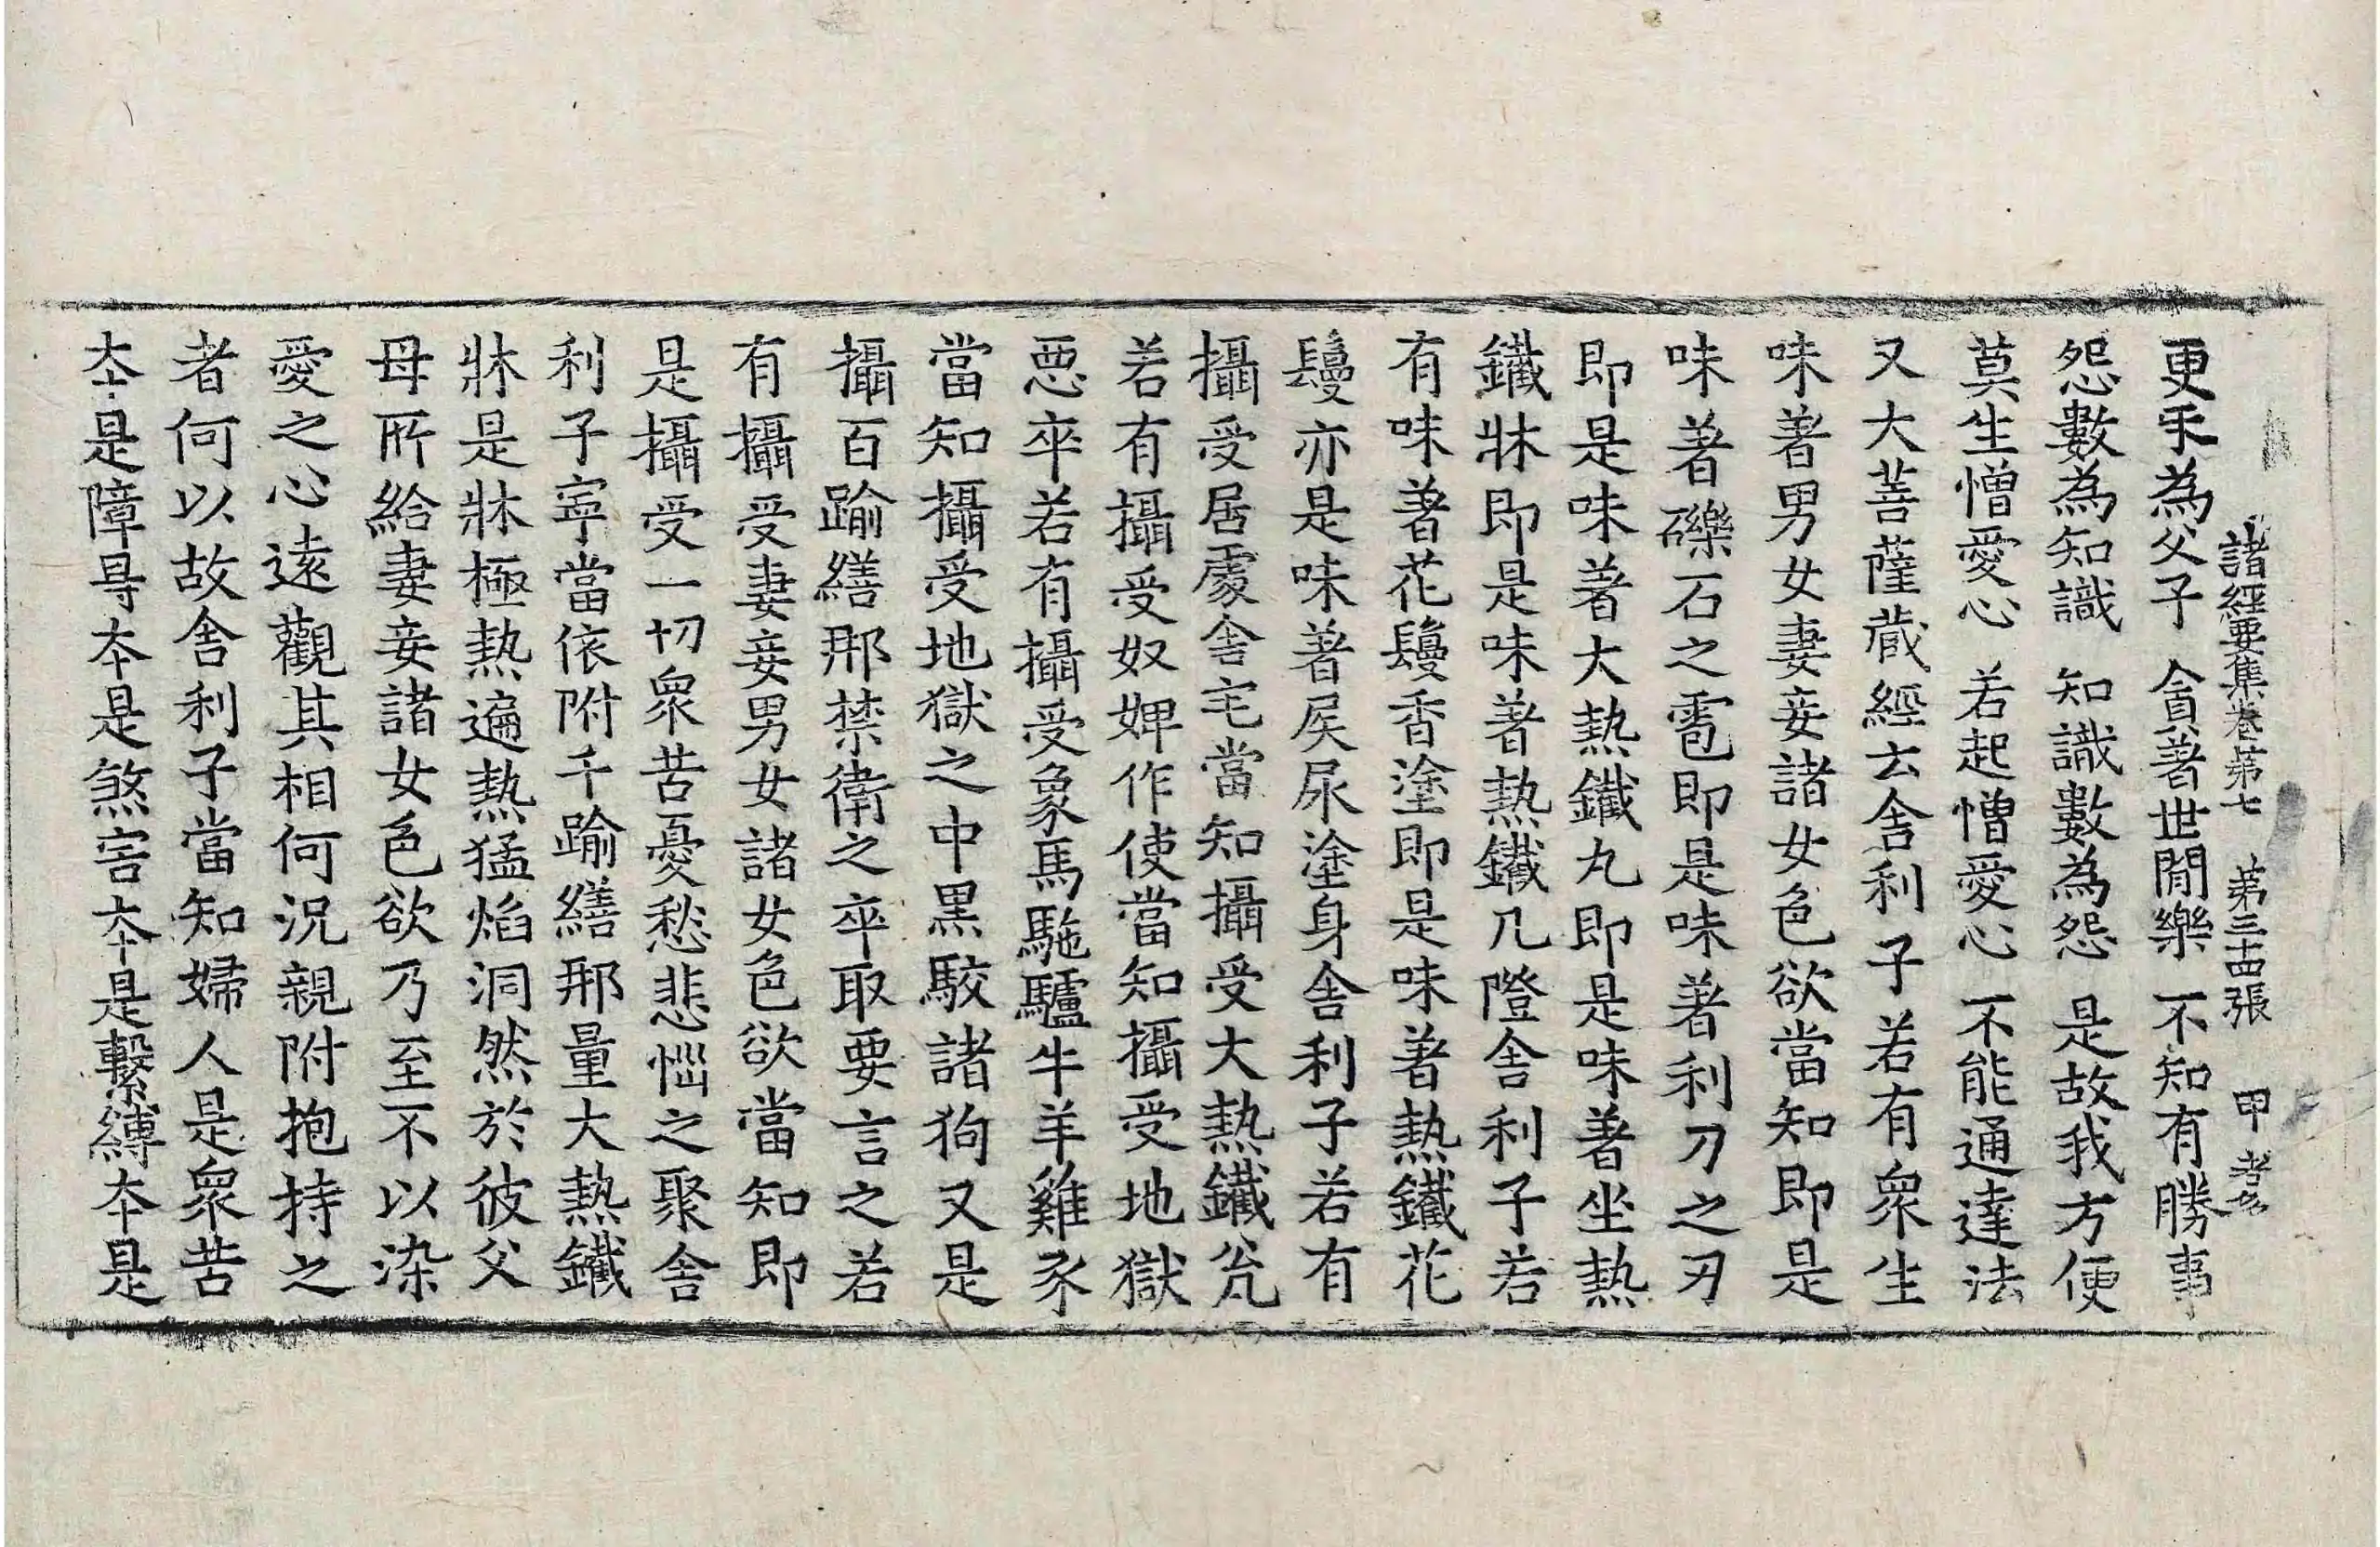 諸經要集卷第七 第三十四張 甲
更互為父子 貪著世間樂 不知有勝事
怨數為知識 知識數為怨 是故我方便
莫生憎愛心 若起憎愛心 不能通達法
又大菩薩藏經云舍利子若有眾生
味著男女妻妾諸女色欲當知即是
味著礫石之雹即是味著利刀之刃
即是味著大熱鐵丸即是味著坐熱
鐵牀即是味著熱鐵几隥舍利子若
有味著花鬘香塗即是味著熱鐵花
鬘亦是味著屎尿塗身舍利子若有
攝受居處舍宅當知攝受大熱鐵瓮
若有攝受奴婢作使當知攝受地獄
惡卒若有攝受象馬駞驢牛羊雞豕
當知攝受地獄之中黑駮諸狗又是
攝百踰繕那禁衛之卒取要言之若
有攝受妻妾男女諸女色欲當知即
是攝受一切眾苦憂愁悲惱之聚舍
利子寧當依附千踰繕那量大熱鐵
牀是牀極熱遍熱猛焰洞然於彼父
母所給妻妾諸女色欲乃至不以染
愛之心遠觀其相何況親附抱持之
者何以故舍利子當知婦人是眾苦
本是障㝵本是煞害本是繫縛本是